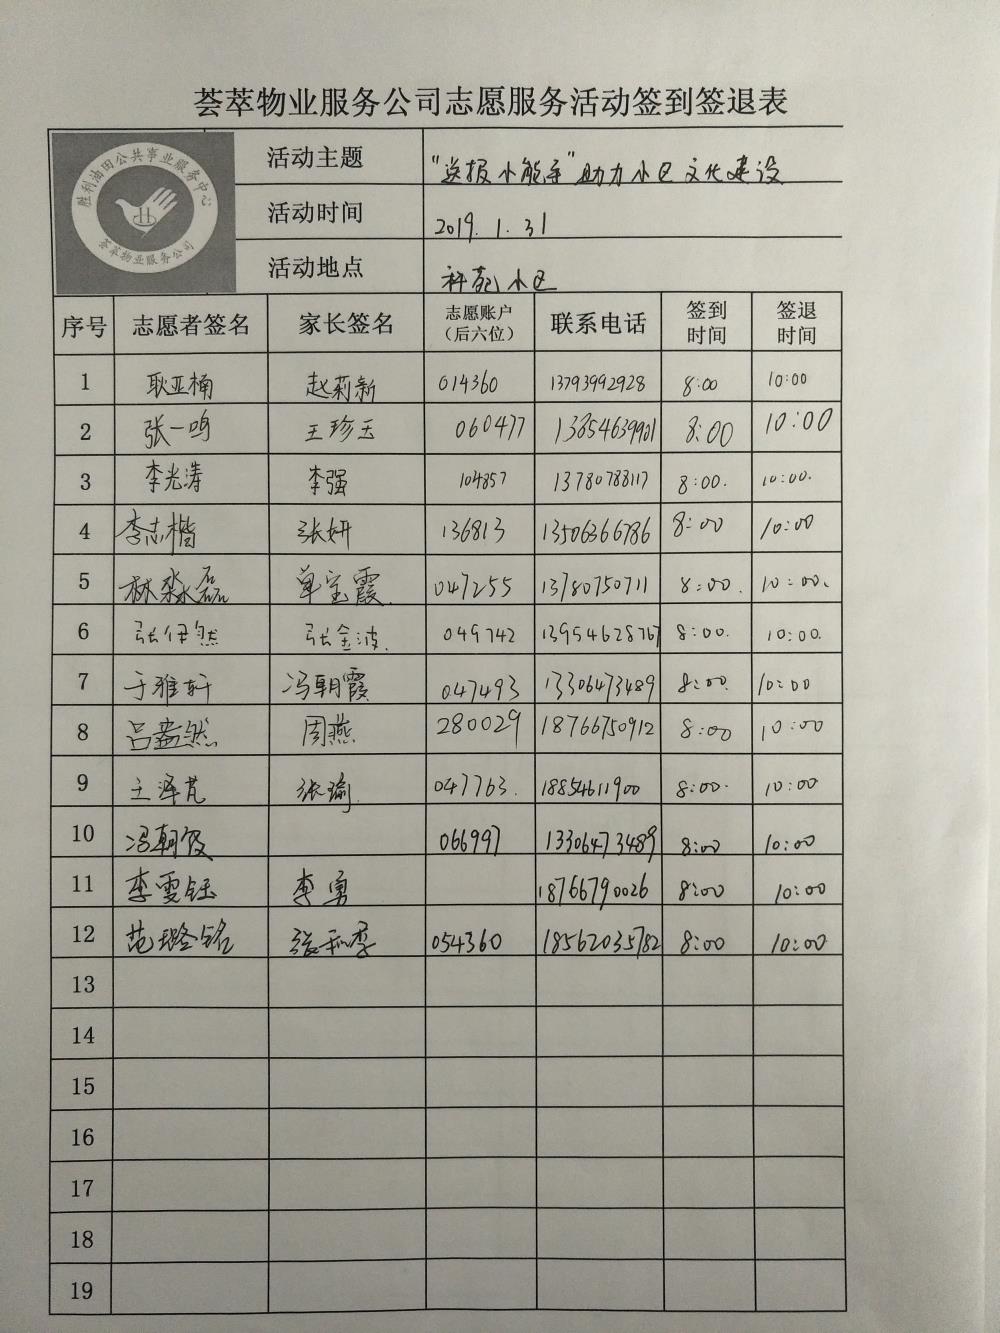 荟萃物业服务公司志愿服务活动签到签退表
胜利油田公共事业服务中心
荟萃物业服务公司
活动主题 "送报小能手"助力小区文化建设
活动时间 2019.1.31
活动地点 科苑小区
序号 志愿者签名 家长签名 志愿账户（后六位） 联系电话 签到时间 签退时间
1 耿亚楠 赵莉新 014360 13793992928 8:00 10:00
2 张一鸣 王珍玉 060477 13854639901 8:00 10:00
3 李光涛 李强 104857 13780788117 8:00. 10:00.
4 李志楷 张妍 136813 13506366786 8:00 10:00
5 林淼磊 单宝霞. 047255 13780750711 8:00. 10:00.
6 张伊然 张金波. 049742 13954628767 8:00. 10:00.
7 于雅轩 冯朝霞 047493 13306473489 8:00. 10:00
8 吕蓥然 周燕 280029 18766750912 8:00 10:00
9 王泽芃 张瑜. 047763. 18854611900 8:00. 10:00
10 冯朝霞 066997 13306473489 8:00 10:00
11 李雯钰 李勇 18766790026 8:00 10:00
12 范璐铭 张和李 054360 18562035782 8:00 10:00
13
14
15
16
17
18
19